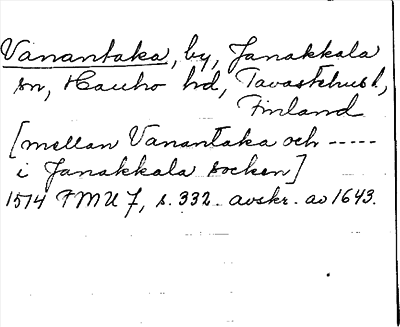 Vanantaka, by, Janakkala
sn, Hauho hd, Tavastehus l,
Finland
[mellan Vanantaka och -----
i Janakkala socken]
1514 FMU 7, s. 332. avskr. av 1643.